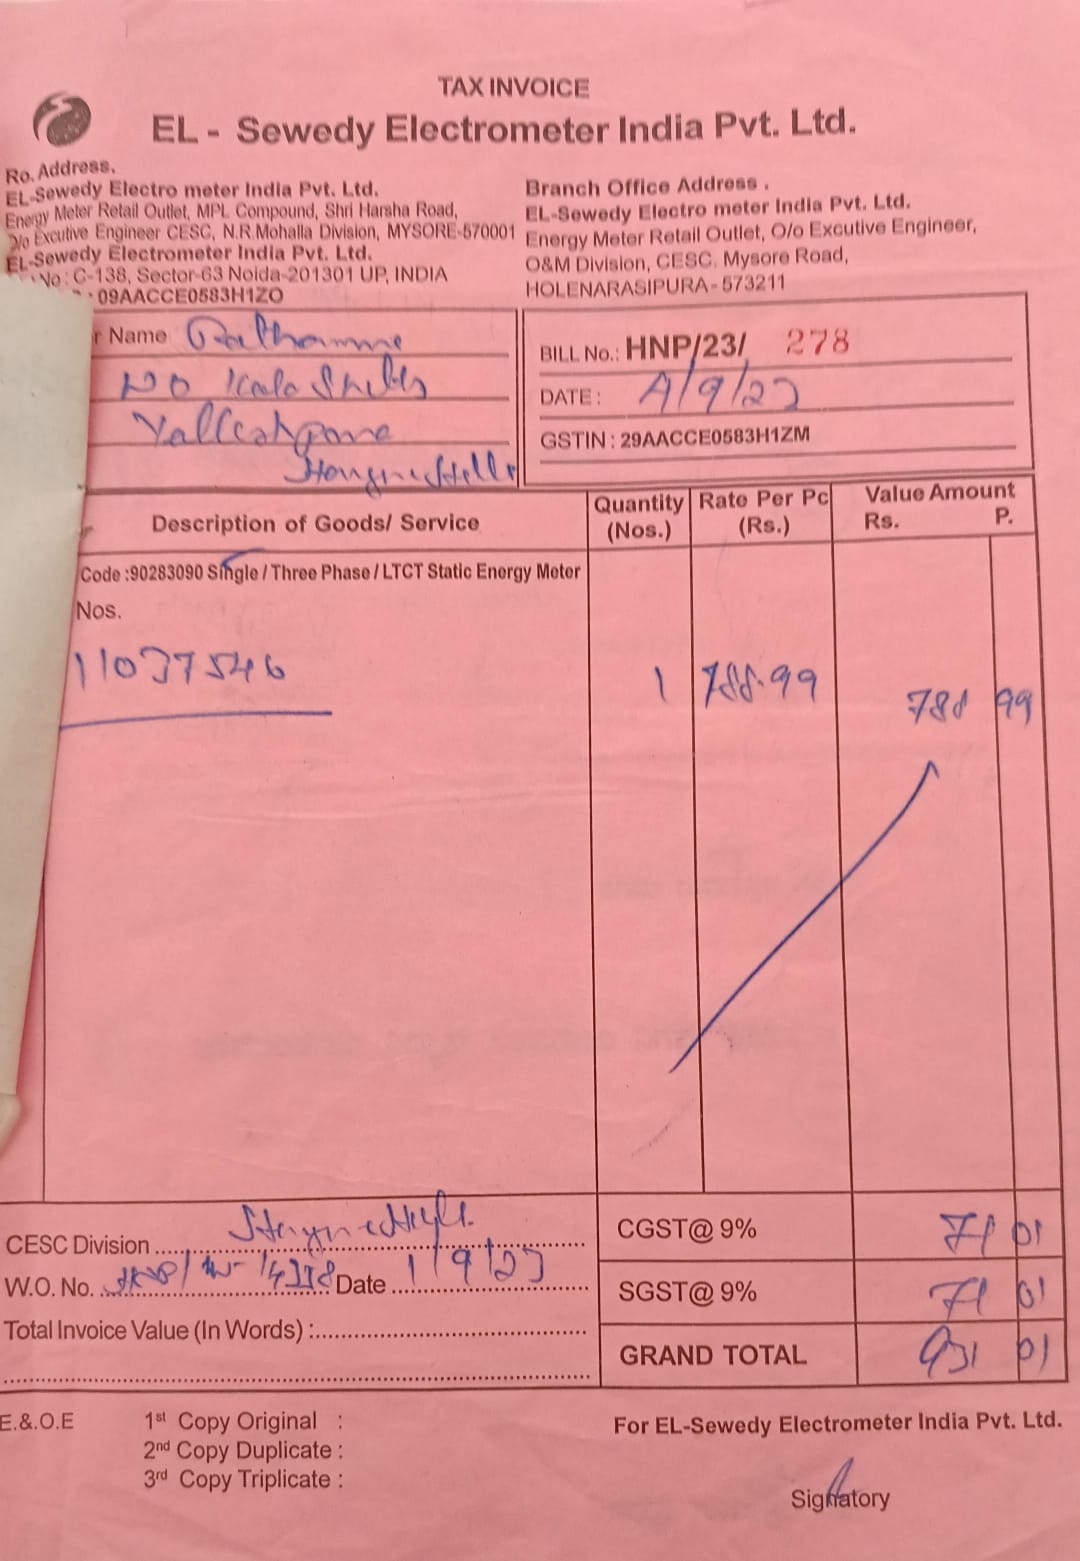 TAX INVOICE
EL - Sewedy Electrometer India Pvt. Ltd.
Ro. Address.
EL-Sewedy Electro meter India Pvt. Ltd.
Energy Meter Retail Outlet, MPL Compound, Shri Harsha Road,
O/o Excutive Engineer CESC, N.R.Mohalla Division, MYSORE-570001
EL-Sewedy Electrometer India Pvt. Ltd.
No : C-138, Sector-63 Noida-201301 UP, INDIA
: 09AACCE0583H1ZO
Branch Office Address .
EL-Sewedy Electro meter India Pvt. Ltd.
Energy Meter Retail Outlet, O/o Excutive Engineer,
O&M Division, CESC, Mysore Road,
HOLENARASIPURA - 573211
r Name
BILL No.: HNP/23/ 278
DATE : /9/23
GSTIN : 29AACCE0583H1ZM
Description of Goods/ Service
Quantity (Nos.)
Rate Per Pc (Rs.)
Value Amount
Rs. P.
Code :90283090 Single / Three Phase / LTCT Static Energy Meter
Nos.
11037546 1 788.99 788 99
CESC Division
W.O. No. Date 1/9/23
Total Invoice Value (In Words) :
CGST@ 9% 71 01
SGST@ 9% 71 01
GRAND TOTAL 931 01
E.&.O.E
1st Copy Original :
2nd Copy Duplicate :
3rd Copy Triplicate :
For EL-Sewedy Electrometer India Pvt. Ltd.
Signatory